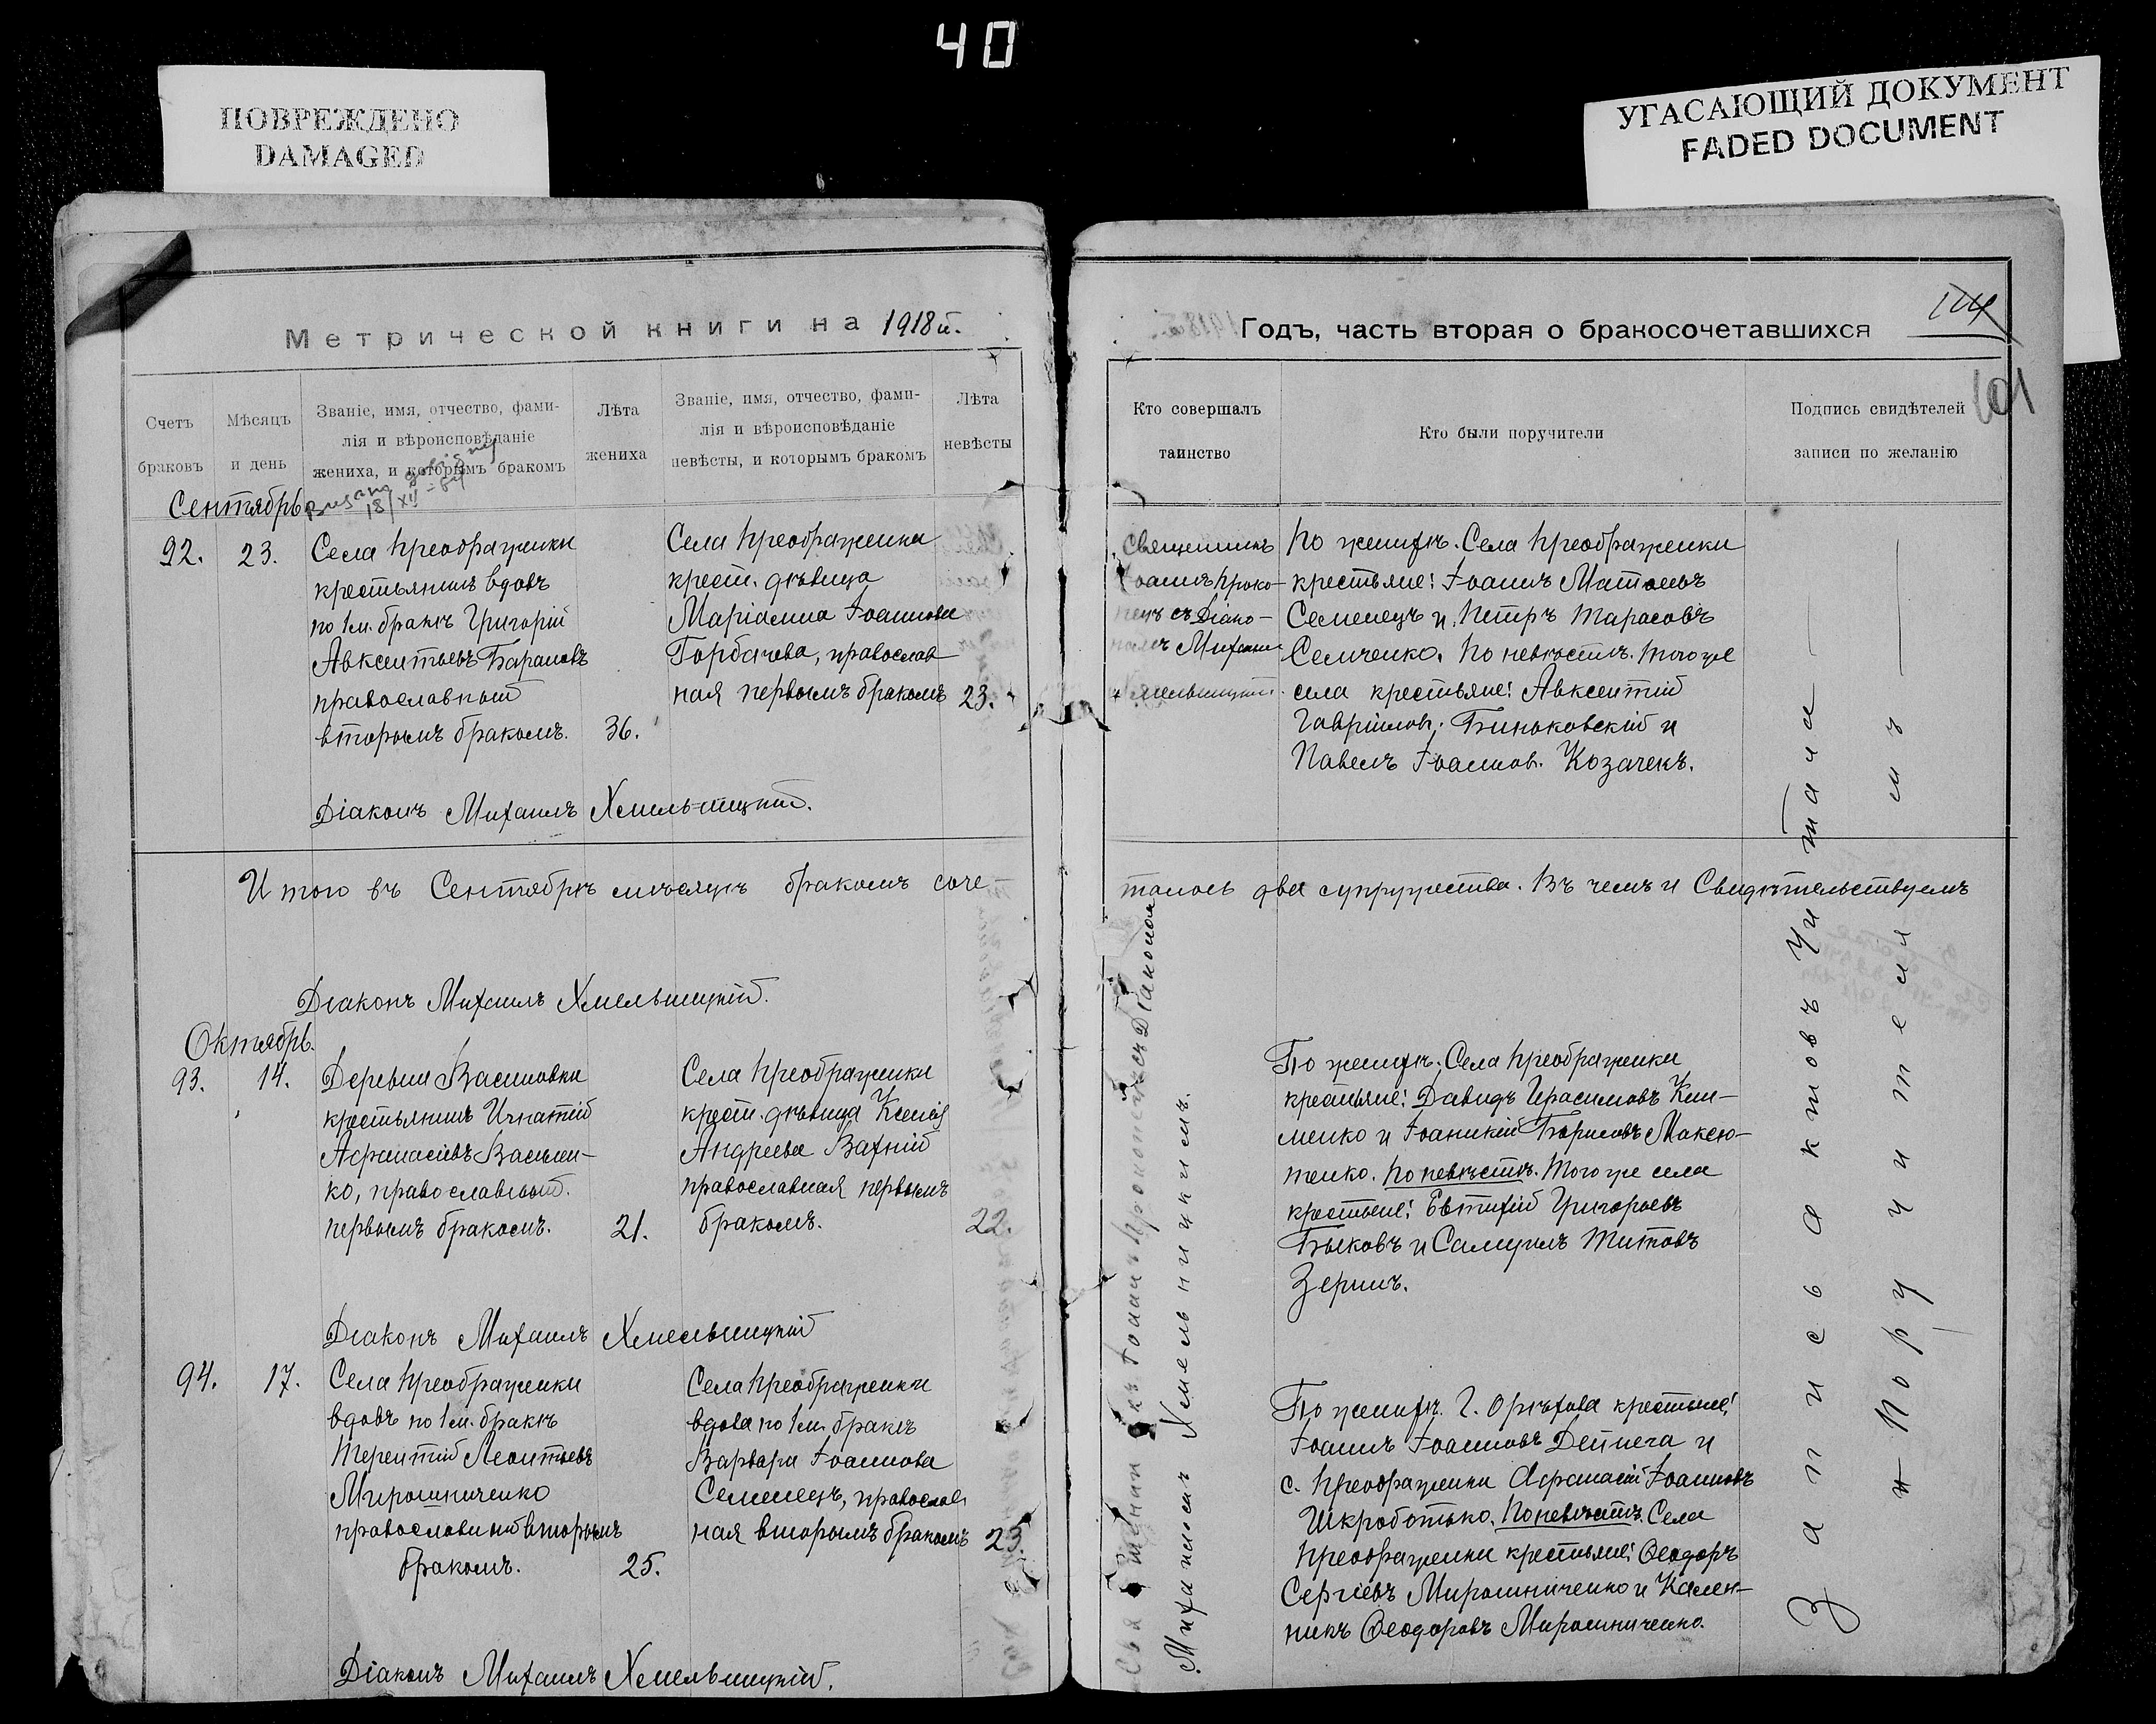 40
ПОВРЕЖДЕНО
DAMAGED
УГАСАЮЩИЙ ДОКУМЕНТ
FADED DOCUMENT
Метрической книги на 1918 й.
Счетъ
браковъ
Мѣсяцъ
и день
Званіе, имя, отчество, фами-
лія и вѣроисповѣданіе
жениха, и которымъ бракомъ
Лѣта
жениха
Званіе, имя, отчество, фами-
лія и вѣроисповѣданіе
невѣсты, и которымъ бракомъ
Лѣта
невѣсты
18/XII
Сентябрь
92.
23.
Села Преображенки
крестьянинъ вдовъ
по 1м. бракѣ Григорій
Авксентьевъ Барановъ
православный
вторымъ бракомъ.
36.
Села Преображенки
крест. дѣвица
Маріанна Іоаннова
Горбачева, православ
ная первымъ бракомъ
23.
Діаконъ Михаилъ Хмельницкій.
И того въ Сентябрѣ мѣсяцѣ бракомъ соче-
Діаконъ Михаилъ Хмельницкій.
Октябрь.
93.
14.
Деревни Васиновки
крестьянинъ Игнатій
Афанасіевъ Василен-
ко, православный.
первымъ бракомъ.
21.
Села Преображенки
крест. дѣвица Ксенія
Андреева Вахній
православная первымъ
бракомъ.
22.
Діаконъ Михаилъ Хмельницкій
94.
17.
Села Преображенки
вдовъ по 1м. бракѣ
Терентій Леонтьевъ
Мирошниченко
православный вторымъ
бракомъ.
25.
Села Преображенки
вдова по 1м. бракѣ
Варвара Іоаннова
Семенецъ, православ
ная вторымъ бракомъ
23.
Діаконъ Михаилъ Хмельницкій.
Годъ, часть вторая о бракосочетавшихся
101
Кто совершалъ
таинство
Кто были поручители
Подпись свидѣтелей
записи по желанію
Священникъ
Іоаннъ Проко-
пецъ съ Діако-
номъ Михаил.
Хмельницкій.
По женихѣ. Села Преображенки
крестьяне: Іоаннъ Матѳеевъ
Семенецъ и Петръ Тарасовъ
Семченко. По невѣстѣ. Того же
села крестьяне: Авксентій
Гавріилов. Биньковскій и
Павелъ Іоаннов. Козачекъ.
талось два супружества. Въ чемъ и Свидѣтельствуемъ
Священникъ Іоаннъ Прокопецъ съ Діакономъ
Михаиломъ Хмельницкимъ.
По женихѣ: Села Преображенки
крестьяне: Давидъ Герасимовъ Кли-
менко и Іоаникій Борисовъ Максю-
тенко. По невѣстѣ. Того же села
крестьяне: Евтихій Григорьевъ
Быковъ и Самуилъ Титовъ
Зеринъ.
По женихѣ. Г. Орѣхова крестьяне:
Іоаннъ Іоанновъ Дейнега и
с. Преображенки Афанасій Іоанновъ
Шкроботько. По невѣстѣ. Села
Преображенки крестьяне: Ѳеодоръ
Сергіевъ Мирошниченко и Кален-
никъ Ѳеодоровъ Мирошниченко.
Запись актовъ читана
Поручителямъ